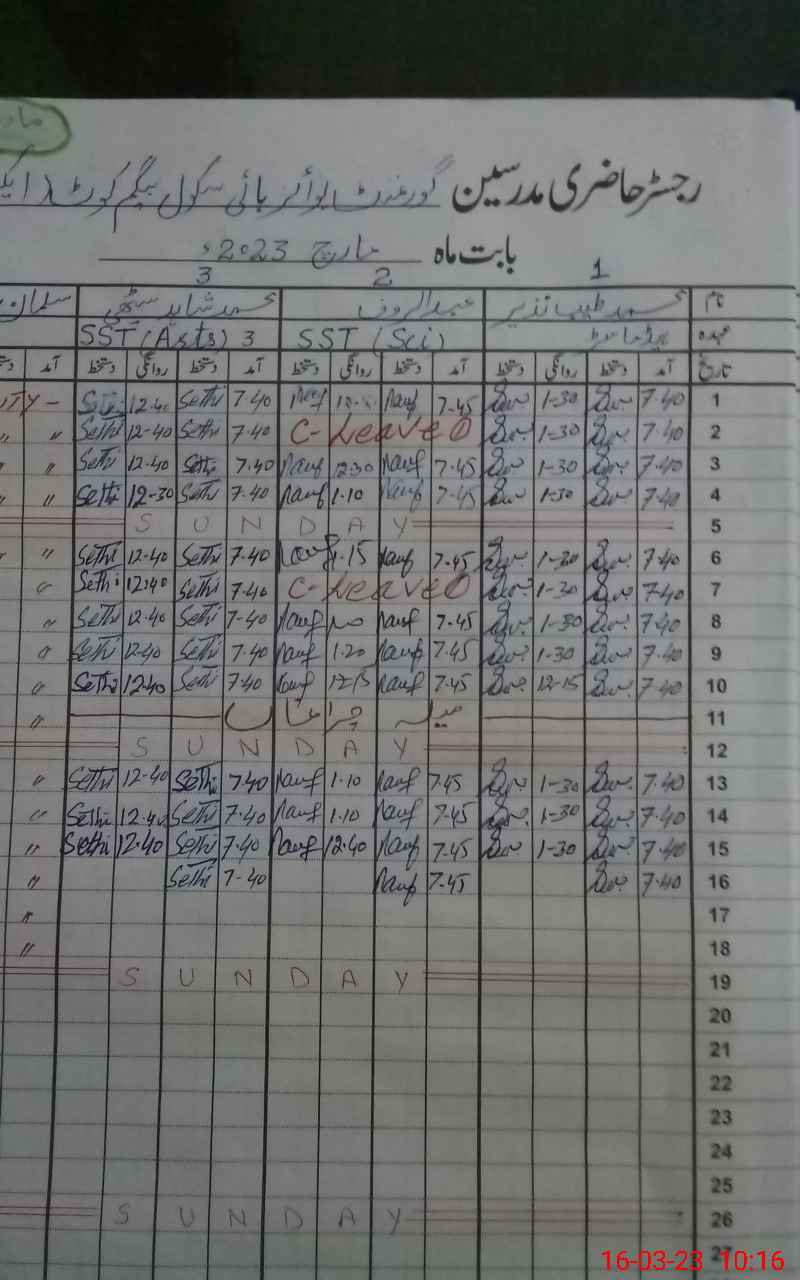 رجسٹر حاضری مدرسین گورنمنٹ بوائز ہائی سکول بیگم کوٹ
بابت ماہ مارچ 2023ء
1 2 3
نام محمد طیب نذیر عبدالروف محمد شاہد سیٹھی سلمان
عہدہ ہیڈ ماسٹر SST (Sci) SST (Arts) 3
تاریخ آمد دستخط روانگی دستخط آمد دستخط روانگی دستخط آمد دستخط روانگی دستخط آمد
1 7-40 1-30 7-45 Rauf 7-40 Sethi 12-40 Sethi ITY -
2 7-40 1-30 C-Leave ① 7-40 Sethi 12-40 Sethi 〃 〃
3 7-40 1-30 7-45 Rauf 12-30 Rauf 7-40 Sethi 12-40 Sethi 〃 〃
4 7-40 1-30 7-45 Rauf 1-10 Rauf 7-40 Sethi 12-30 Sethi 〃 〃
5 SUNDAY
6 7-40 1-30 7-45 Rauf 1-15 Rauf 7-40 Sethi 12-40 Sethi 〃
7 7-40 1-30 C-Leave 7-40 Sethi 12-40 Sethi 〃
8 7-40 1-30 7-45 Rauf Rauf 7-40 Sethi 12-40 Sethi 〃
9 7-40 1-30 7-45 Rauf 1-20 Rauf 7-40 Sethi 12-40 Sethi 〃
10 7-40 12-15 7-45 Rauf 12-15 Rauf 7-40 Sethi 12-40 Sethi 〃
11 میلہ چراغاں 〃
12 SUNDAY
13 7-40 1-30 7-45 Rauf 1-10 Rauf 7-40 Sethi 12-40 Sethi 〃
14 7-40 1-30 7-45 Rauf 1-10 Rauf 7-40 Sethi 12-40 Sethi 〃
15 7-40 1-30 7-45 Rauf 12-40 Rauf 7-40 Sethi 12-40 Sethi 〃
16 7-40 7-45 Rauf 7-40 Sethi 〃
17 〃
18 〃
19 SUNDAY
20
21
22
23
24
25
26 SUNDAY
27
16-03-23 10:16